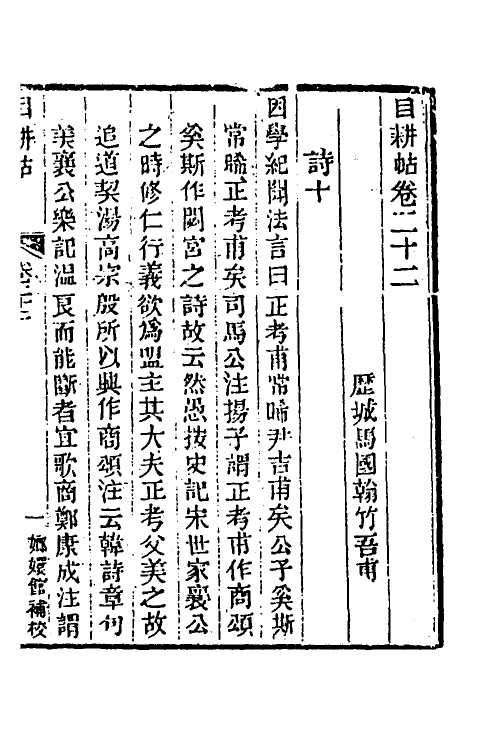 目耕帖卷二十二
歷城馬國翰竹吾甫
詩十
困學紀聞法言曰正考甫常晞尹吉甫矣公子奚斯
常晞正考甫矣司馬公注揚子謂正考甫作商頌
奚斯作閟宮之詩故云然愚按史記宋世家襄公
之時修仁行義欲為盟主其大夫正考父美之故
追道契湯高宗殷所以興作商頌注云韓詩章句
美襄公樂記温良而能斷者宜歌商鄭康成注謂
目耕帖
卷二十二
一
嫏嬛館補校